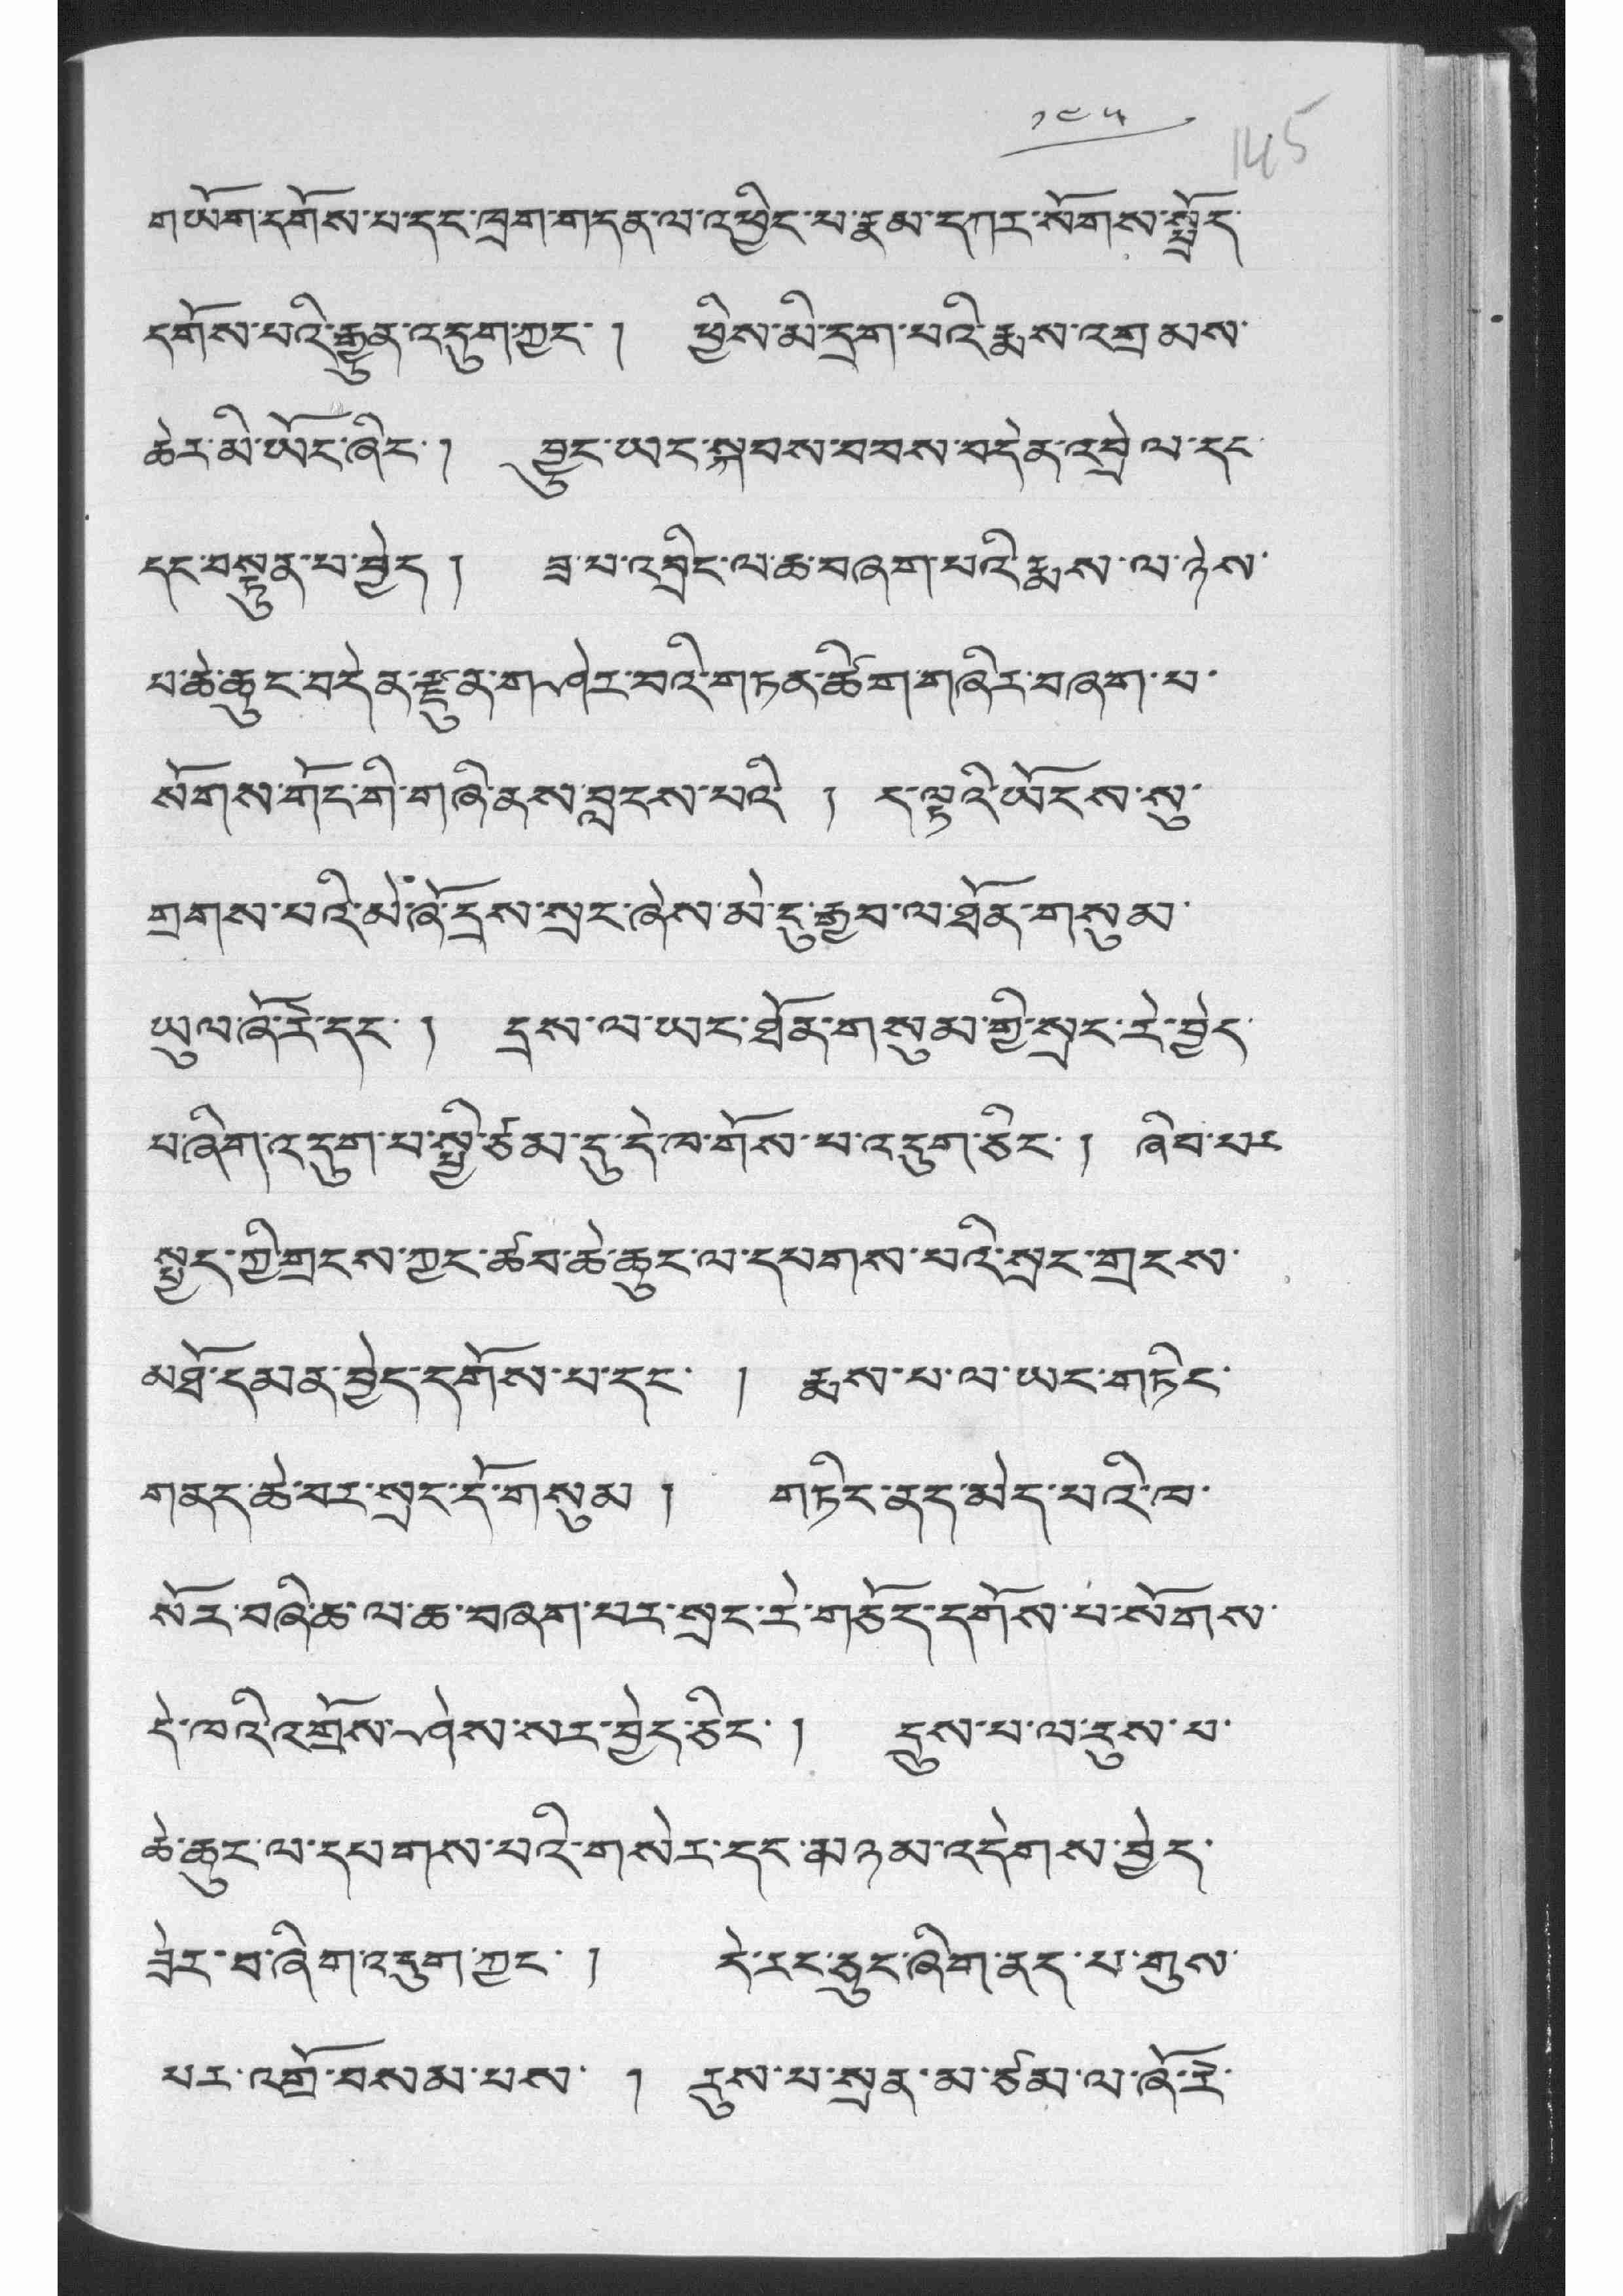 ༡༤༥
145
གཡོག་དགོས་པ་དང་ཁྲག་གདན་ལ་འཕྱིང་པ་རྣམ་དཀར་སོགས་སྤྲོད་
དགོས་པའི་རྒྱུན་འདུག་ཀྱང་། ཕྱིས་མི་དྲག་པའི་རྨས་འགྲམས་
ཆེར་མི་ཡོང་ཞིང་། བྱུང་ཡང་སྐབས་བབས་བདེན་འབྲེལ་དང་
དང་བསྟུན་པ་བྱེད། ཟླ་པ་འབྲིང་ལ་ཆ་བཞག་པའི་རྨས་ལ་ཉེས་
པ་ཆེ་ཆུང་བདེན་རྫུན་གཤེར་བའི་གཏན་ཚིག་གཞིར་བཞག་པ་
སོགས་གོང་གི་གཞི་ནས་བླངས་པའི། ད་ལྟའི་ཡོངས་སུ་
གྲགས་པའི་མེ་ཞོ་དྲས་སྲང་ཞེས་མེ་དུ་རྒྱབ་ལ་ཐོན་གསུམ་
ཡུལ་ཞོ་རེ་དང་། དྲས་ལ་ཡང་ཐོན་གསུམ་གྱི་སྲང་རེ་བྱེད་
པ་ཞིག་འདུག་པ་སྤྱི་ཙམ་དུ་དེ་ཁ་གོས་པ་འདུག་ཅིང་། ཞིབ་པར
སྤྱང་ཀྱི་གྲངས་ཀྱང་ཚབ་ཆེ་ཆུང་ལ་དཔགས་པའི་སྲང་གྲངས་
མཐོ་དམན་བྱེད་དགོས་པ་དང་། རྨས་པ་ལ་ཡང་གཏིང་
གནད་ཆེ་བར་སྲང་དོ་གསུམ། གཏིང་ནད་མེད་པའི་ཁ་
སོར་བཞི་ཆ་ལ་ཆ་བཞག་པར་སྲང་རེ་གཅོད་དགོས་པ་སོགས་
དེ་ཁའི་འགྲོས་ཤེས་སར་བྱེད་ཅིང་། དྲུས་པ་ལ་རུས་པ་
ཆེ་ཆུང་ལ་དཔགས་པའི་གསེར་དང་མཉམ་འདེགས་བྱེད་
ཟེར་བ་ཞིག་འདུག་ཀྱང་། དེ་རང་ཅུང་ཞིག་ནད་པ་གུས་
པར་འགྲོ་བསམ་པས་། རུས་པ་སྲན་མ་ཙམ་ལ་ཞོ་རེ་